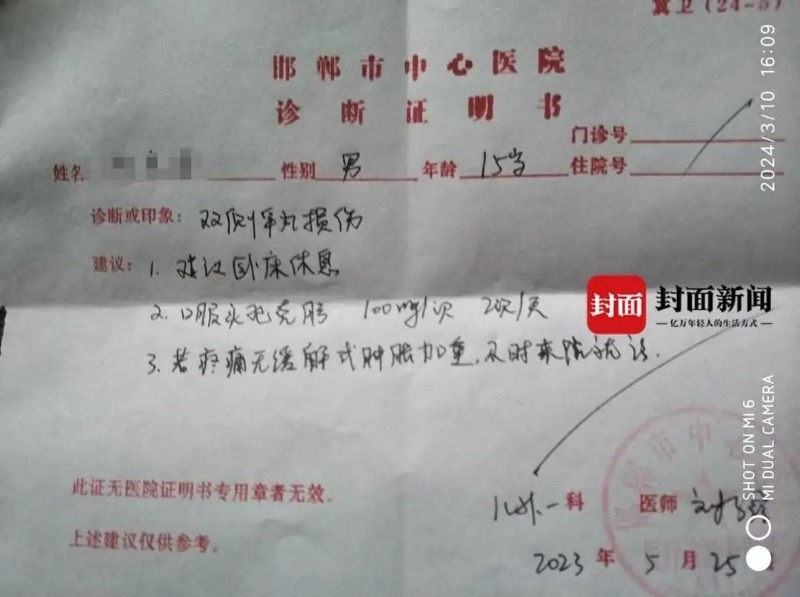 冀卫(24-5)
邯郸市中心医院
诊断证明书
门诊号
姓名 性别 男 年龄 15岁 住院号
诊断或印象：双侧睾丸损伤
建议：1. 建议卧床休息
2. 口服头孢克肟 100mg/次 2次/天
3. 若疼痛无缓解或肿胀加重，及时来院就诊.
封面 封面新闻
—亿万年轻人的生活方式—
此证无医院证明书专用章者无效。
儿外一科 医师
上述建议仅供参考。
2023年5月25
2024/3/10 16:09
SHOT ON MI 6
MI DUAL CAMERA